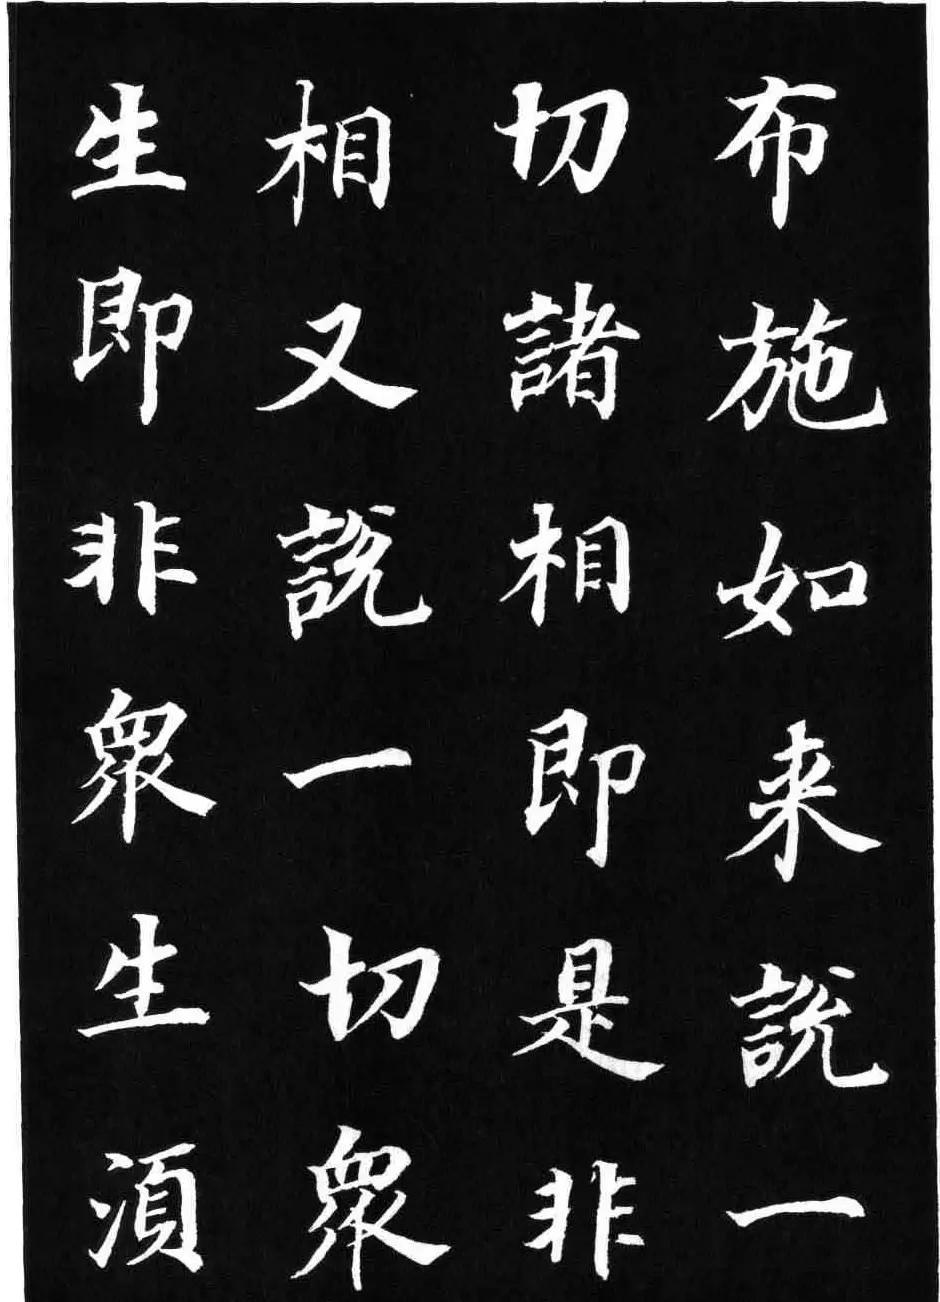 布施如来説一
切諸相即是非
相又説一切眾
生即非眾生湏